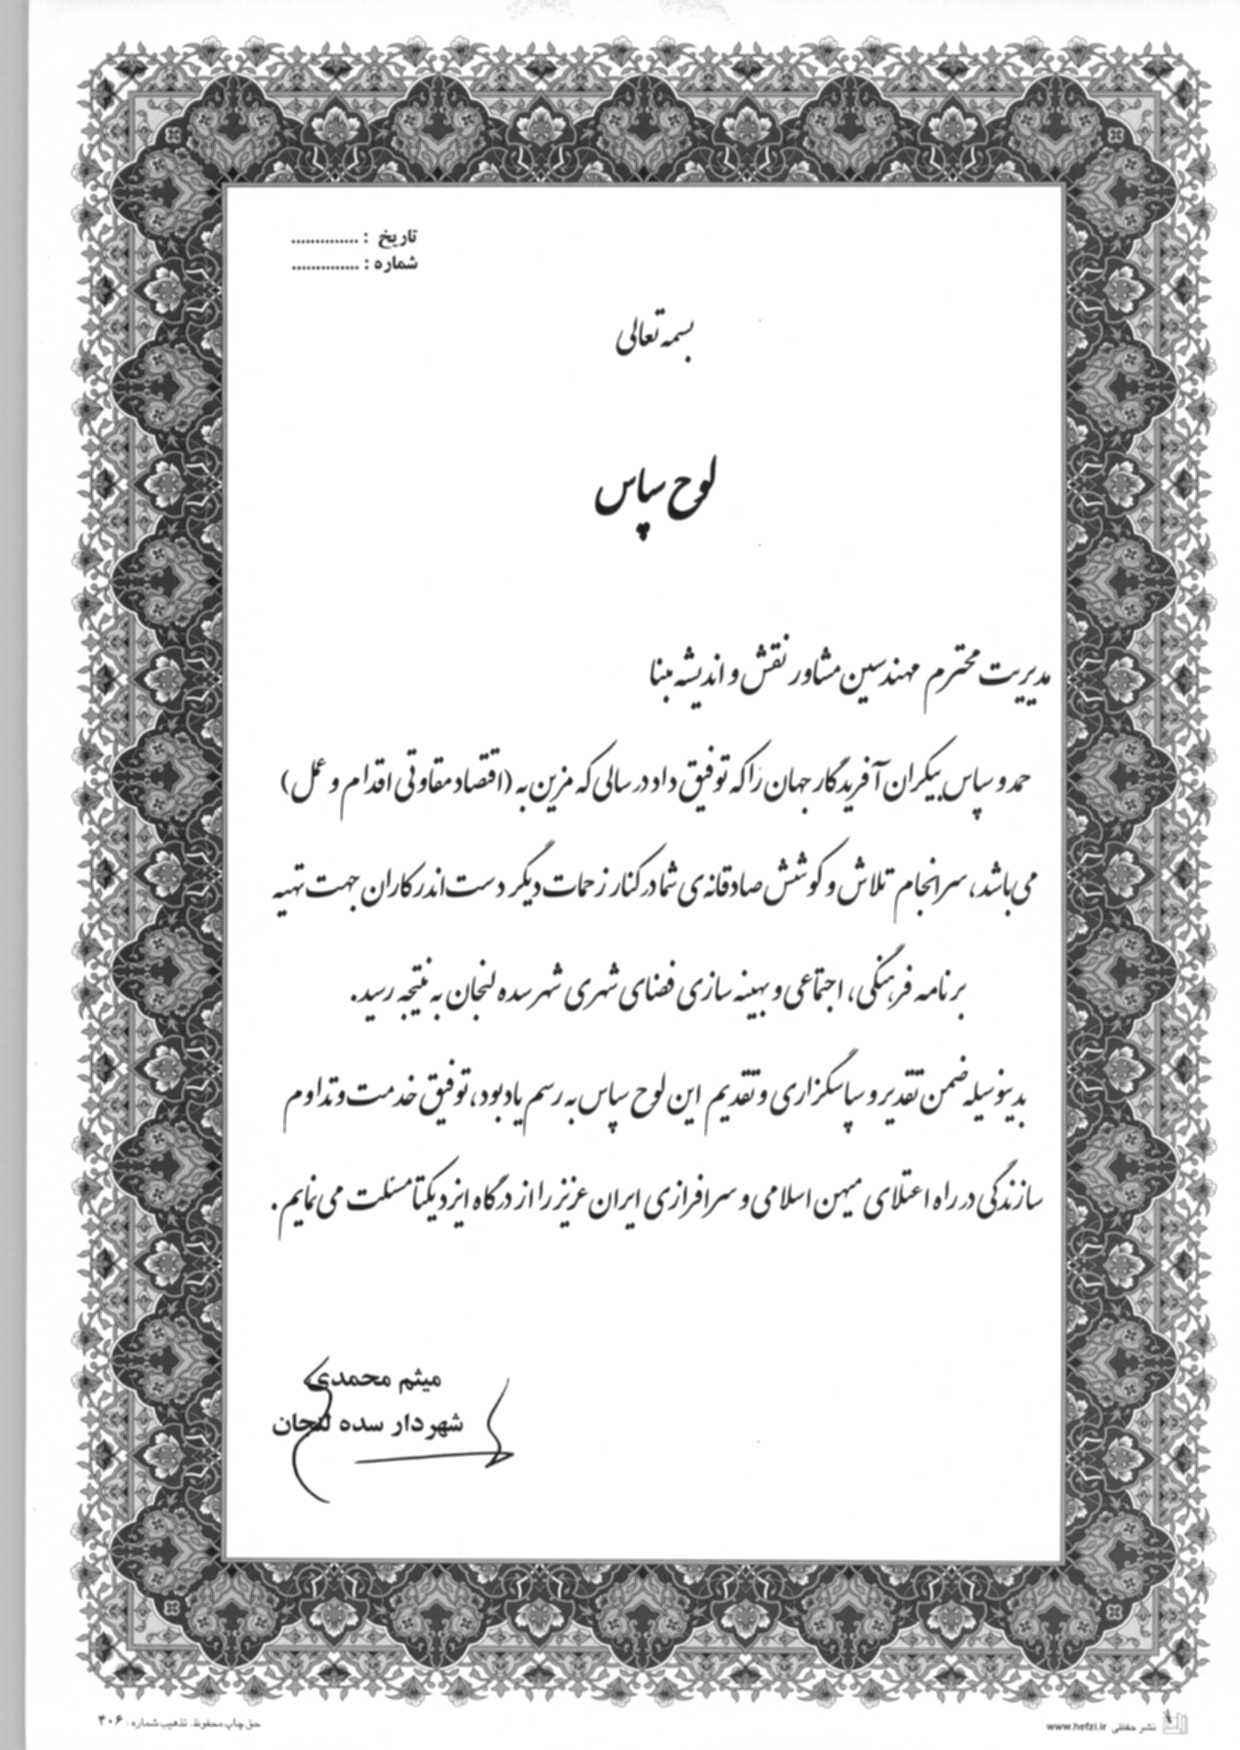 تاریخ : ..............
شماره : ..............
بسمه تعالی
لوح سپاس
مدیریت محترم مهندسین مشاور نقش و اندیشه مبنا
حمد و سپاس بیکران آفریدگار جهان را که توفیق داد در سالی که مزین به (اقتصاد مقاوتی اقدام و عمل)
می باشد، سرانجام تلاش و کوشش صادقانه ی شما در کنار زحمات دیگر دست اندرکاران جهت تهیه
برنامه فرهنگی، اجتماعی و بهینه سازی فضای شهری شهر سده لنجان به نتیجه رسید.
بدینوسیله ضمن تقدیر و سپاسگزاری و تقدیم این لوح سپاس به رسم یادبود، توفیق خدمت و تداوم
سازندگی در راه اعتلای میهن اسلامی و سرافرازی ایران عزیز را از درگاه ایزد یکتا مسئلت می نمایم.
میثم محمدی
شهردار سده لنجان
نشر حفظی www.hefzi.ir
حق چاپ محفوظ. تذهیب شماره : ۴۰۶